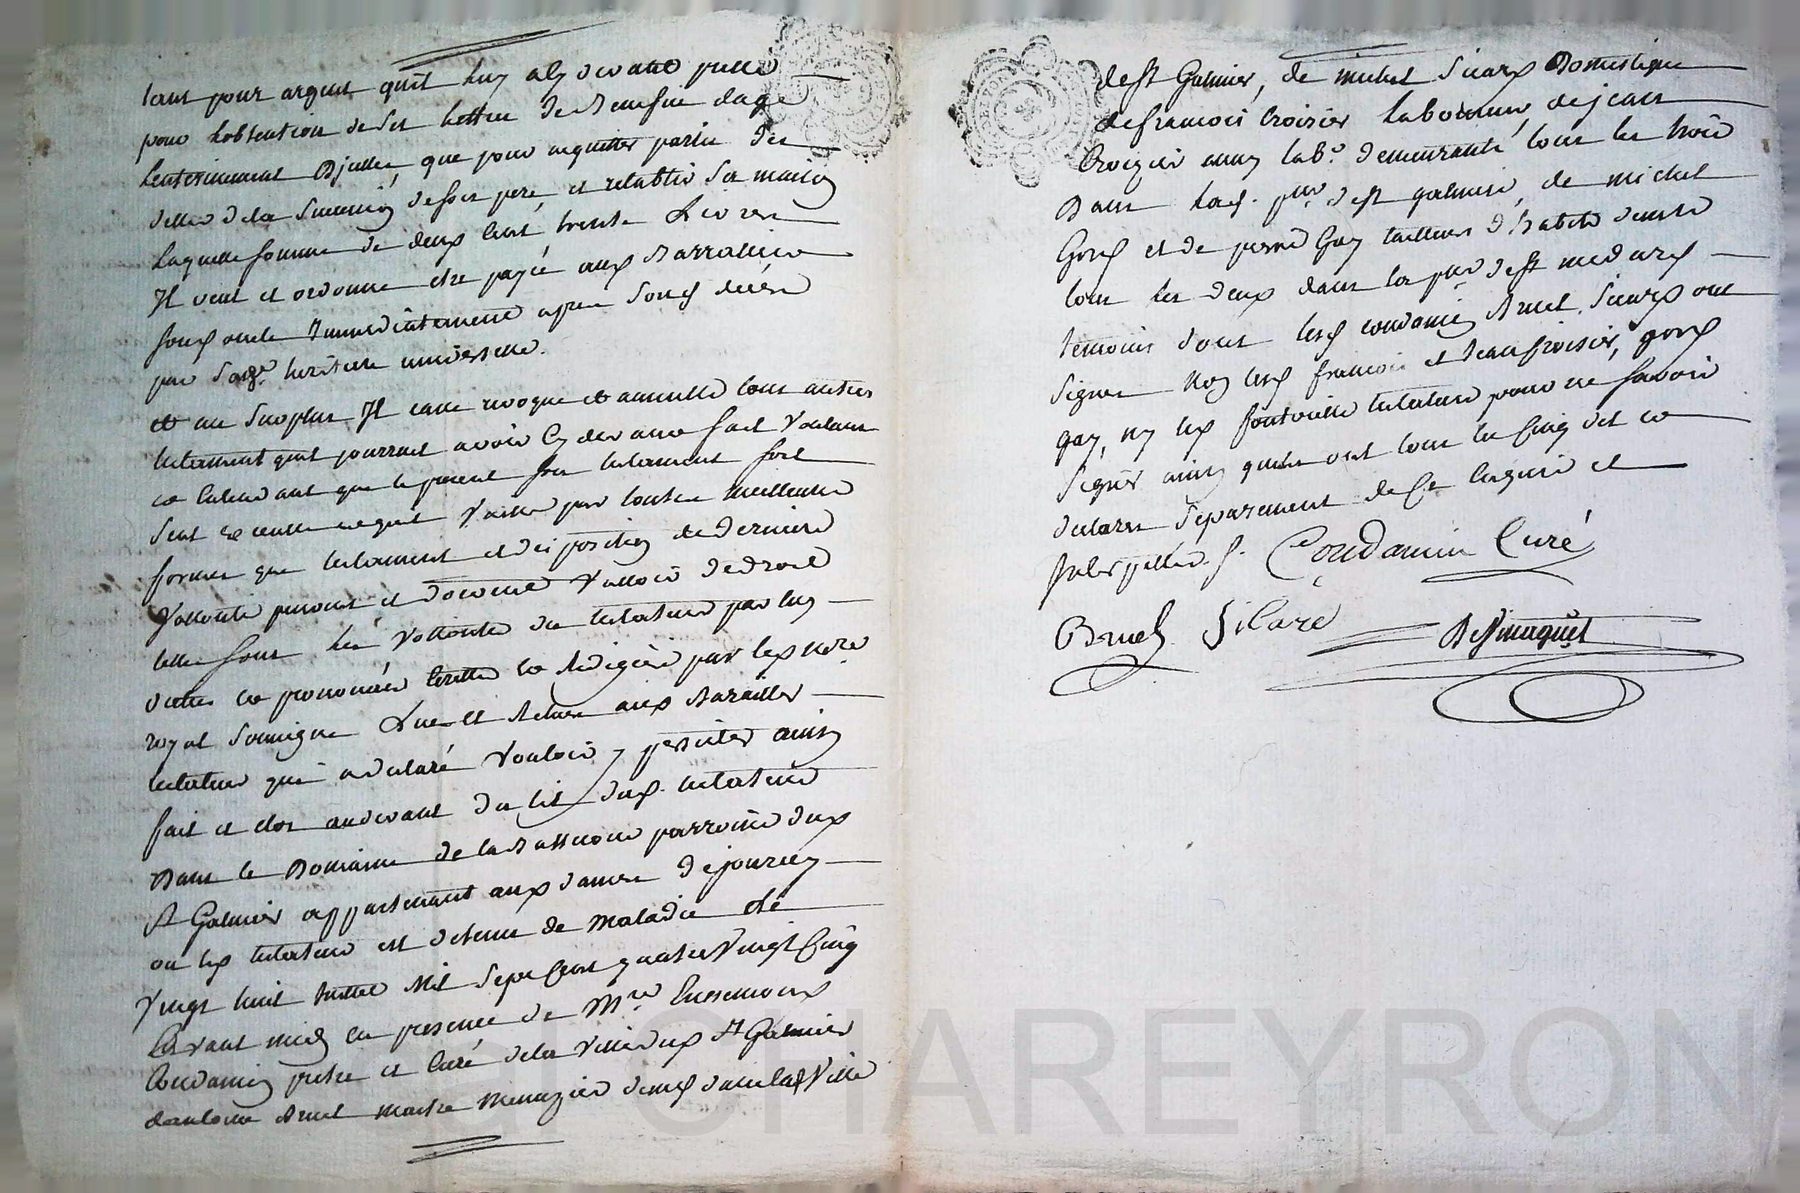 tant pour argent quil luy a cy devant prette
pour lobtention de ses lettres de Benefice dage
Lenterinement Dicelles, que pour acquitter partie des
dettes de la Succession de son pere, et retablir ses maison
Laquelle somme de deux cent trente Livres
Il veut et ordonne etre payée aux
immediatement apres Son decès
par Sad. heritiere universelle.
et au Surplus Il casse revoque et annulle tous autres
testament quil pourroit avoir Cy devant fait Voulant
et entendant que le present Son testament soit
Seul execute et quil Vaille par toutes meilleures
formes que testament et disposition de derniere
Vollonté peuvent et doivent Valloir de droit
telles sont les Vollontés du testateur par luy
dictes et prononcées Ecrittes et Redigées par led. no.re
royal Soussigné Lues et Relues aud.
testateur qui a declaré Vouloir y persister ainsy
fait et clos audevant du lit dud. testateur
Dans le Domaine de la parroisse dud.
St Galmier appartenant aux dames de jourcey
ou led. testateur est detenu de Maladie ce
Vingt huit Mil Sept Cent quatre Vingt Cinq
avant midy en presence de M.re
Coudamin pretre et Curé de la Ville dud. St Galmier
dantoine Bruel maitre Menuzier dem.t dans lad. Ville
de St Galmier, de michel Sicard Domestique
de francois Croizier Laboureur, de jean
Croizier aussy lab.r demeurants tous les trois
Dans lad. p.sse de St galmier, de michel
et de pierre Gay tailleurs d'habits dem.ts
tous les deux dans la p.sse de St medard
temoins dont lesd. Coudamin Bruel Sicard ont
Signé Non lesd. francois et Jean Croizier,
gay, ny led. testateur pour ne Savoir
Signer ainsy quils ont tous les Cinq dit et
declarer Separement de Ce Enquis et
Interpellés./. Coudamin Curé
Bruel Sicard
CHAREYRON